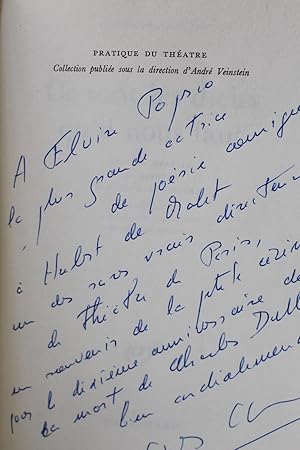 PRATIQUE DU THÉATRE
Collection publiée sous la direction d'André Veinstein
A Elvire Popesco
la plus grande actrice
de poésie comique
à Hubert de Malet
un des rares vrais directeurs
de théâtre de Paris,
en souvenir de la petite
pour le dixième anniversaire de
la mort de Charles Dull
bien cordialement